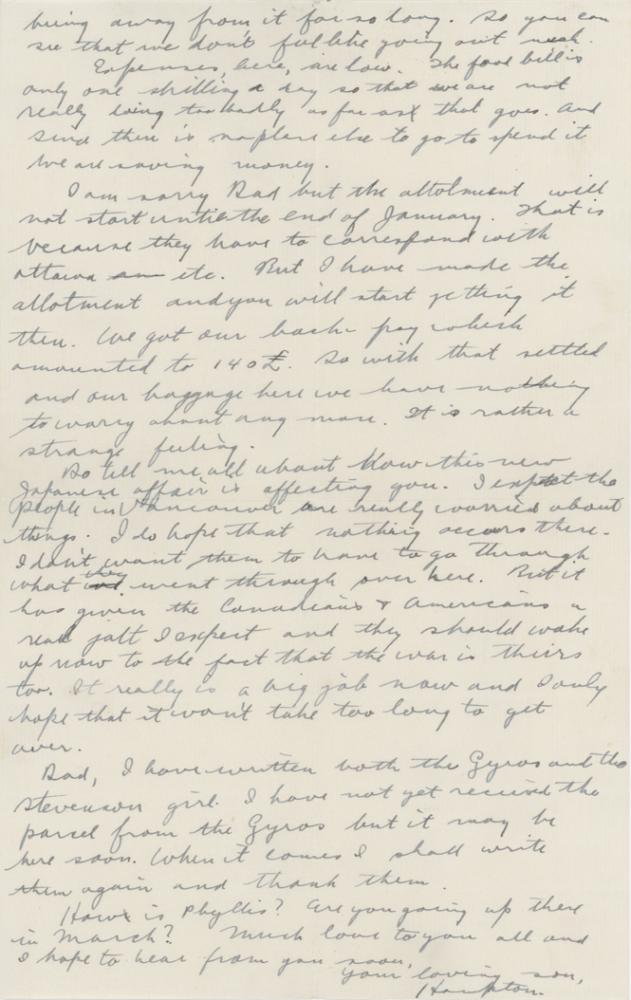 being away from it for so long. So you can
see that we don't feel like going out much.
Expenses, here, are low. The food bill is
only one shilling a day so that we are not
really doing too badly as far as that goes. And
since there is no place else to go to spend it
we are saving money.
I am sorry Dad but the allotment will
not start until the end of January. That is
because they have to correspond with
Ottawa etc. But I have made the
allotment and you will start getting it
then. We got our back-pay which
amounted to 140£. So with that settled
and our baggage here we have nothing
to worry about any more. It is rather a
strange feeling.
Do tell me all about how this new
Japanese affair is affecting you. I expect the
people in Vancouver are really worried about
things. I do hope that nothing occurs there.
I don't want them to have to go through
what they went through over here. But it
has given the Canadians & Americans a
real jolt I expect and they should wake
up now to the fact that the war is theirs
too. It really is a big job now and I only
hope that it won't take too long to get
over.
Dad, I have written both the Gyros and the
Stevenson girl. I have not yet received the
parcel from the Gyros but it may be
here soon. When it comes I shall write
them again and thank them.
How is Phyllis? Are you going up there
in March? Much love to you all and
I hope to hear from you soon,
Your loving son,
Hampton.